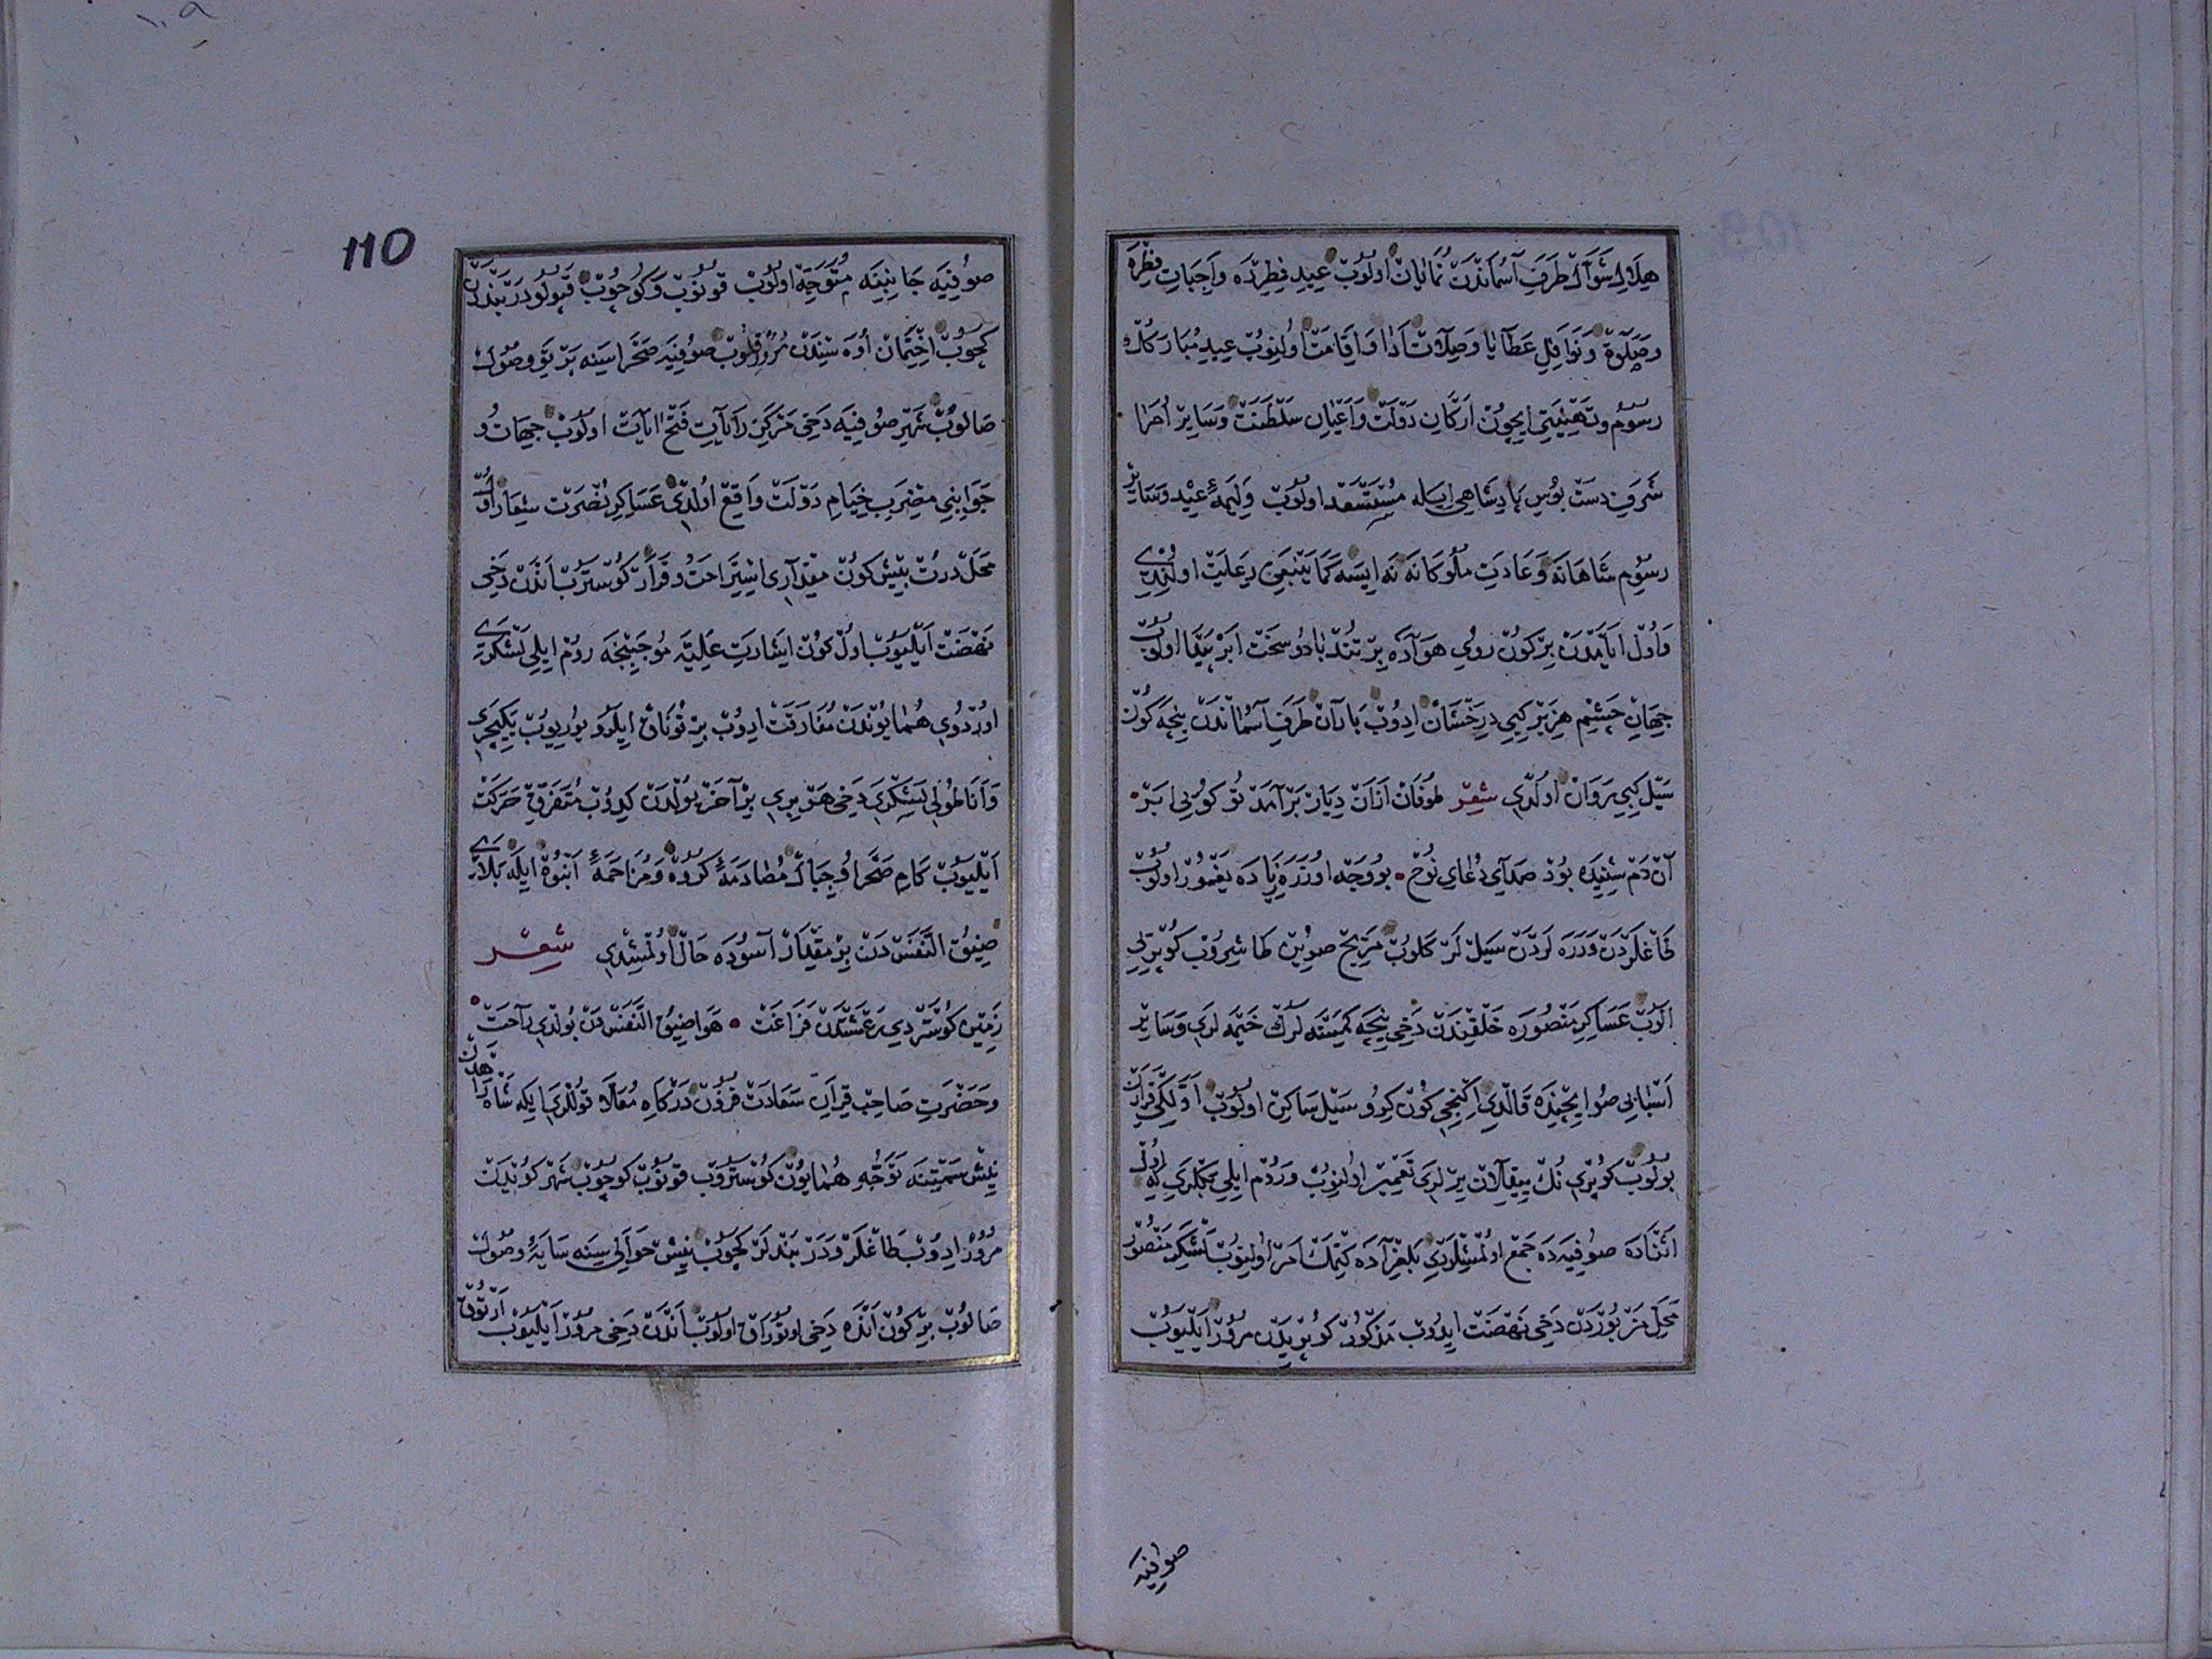 هلال شوال طرف آسماندن نمایان اولوب عید فطرده واجبات فطره
وصلوة ونوافل عطایا وصلات ادا واقامت اولنوب عید مبارك
رسوم وتهنیتی ایچون ارکان دولت واعیان سلطنت وسایر امرا
شرف دست بوس پادشاهی ایله مستسعد اولوب ولیمهٔ عید وسایر
رسوم شاهانه وعادت ملوکانه نه ایسه کما ینبغی رعایت اولندی
واول ایامدن بر کون روی هواده بر تند باد وسخت ابر پیدا اولوب
جهان چشم هزبر کبی درخشان ادوب باران طرف آسماندن نیجه کون
سیل کبی روان اولدی شعر طوفان ازان دیار برآمد تو کوبی ابر
آن دم شنیده بود صدای دعای نوح بو وجه اوزره زیاده یغمور اولوب
طاغلردن ودره لردن سیل لر کلوب مریج صویین طاشروب کوپریلی
الوب عساکر منصوره خلقندن دخی نیجه کمسنه لرك خیمه لری وسایر
اسبابی صو ایچنده قالدی اکنجی کون کرو سیل ساکن اولوب اولکی قرارن
بولوب کوپری نك ییقلان یرلری تعمیر اولنوب وروم ایلی بکلربکی که اول
اثناده صوفیه ده جمع اولمشلردی بلغراده کتمك امر اولنوب لشکر منصور
محل مزبوردن دخی نهضت ایدوب مذکور کوپریدن مرور ایلیوب
صوفیه
110
صوفیه جانبنه متوجه اولوب قونوب وکوچوب قپولو دربندن
کچوب اختمان اوه سندن مرور قلوب صوفیه صحراسینه پرتو وصول
صالوب شهر صوفیه دخی مرکز رایات فتح آیات اولوب جهات و
جوانبی مضرب خیام دولت واقع اولدی عساکر نصرت شعار اول
محل درت بیش کون مقداری استراحت وقرار کوستروب اندن دخی
نهضت ایلیوب اول کون اشارت علیه موجبنجه روم ایلی لشکری
اوردوی همایوندن مفارقت ایدوب بر قوناق ایلرو یوریوب یکیچری
واناطولی لشکری دخی هر بری بر آخر یولدن کیدوب متفرق حرکت
ایلیوب کام صحرا وجبال مصادمهٔ کروه ومزاحمهٔ انبوه ایله بلاری
ضیق النفس دن بر مقدار آسوده حال اولمشدی شعر
زمین کوستردی رعشتدن فراغت هوا ضیق النفس دن بولدی راحت
وحضرت صاحب قران سعادت قرون درکاه معلا قوللری ایله شاه راهدن
نیش سمتنه توجه همایون کوستروب قونوب کوچوب شهر کویدن
مرور ادوب طاغلر ودربندلر کچوب نیش حوالی سینه سایهٔ وصول
صالوب بر کون انده دخی اوتوراق اولوب اندن دخی مرور ایلیوب ارتوق